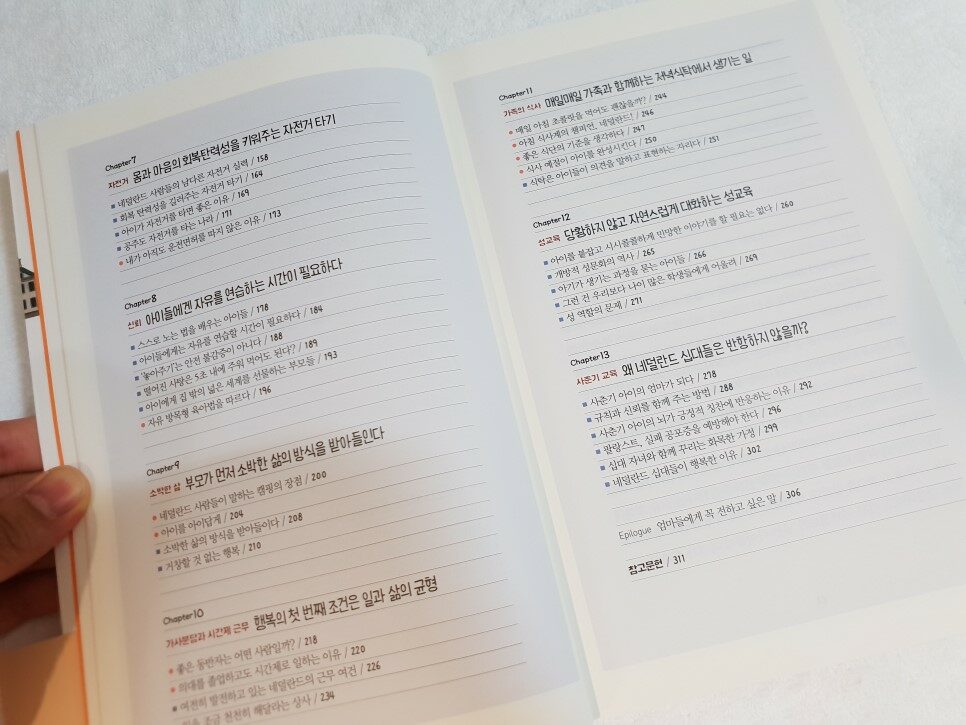 Chapter7
자전거 몸과 마음의 회복탄력성을 키워주는 자전거 타기
네덜란드 사람들의 남다른 자전거 실력 / 158
회복 탄력성을 길러주는 자전거 타기 / 164
아이가 자전거를 타면 좋은 이유 / 169
공주도 자전거를 타는 나라 / 171
내가 아직도 운전면허를 따지 않은 이유 / 173
Chapter8
신뢰 아이들에겐 자유를 연습하는 시간이 필요하다
스스로 노는 법을 배우는 아이들 / 178
아이들에게는 자유를 연습할 시간이 필요하다 / 184
'놓아주기'는 안전 불감증이 아니다 / 188
떨어진 사탕은 5초 내에 주워 먹어도 된다? / 189
아이에게 집 밖의 넓은 세계를 선물하는 부모들 / 193
자유 방목형 육아법을 따르다 / 196
Chapter9
소박한 삶 부모가 먼저 소박한 삶의 방식을 받아들인다
네덜란드 사람들이 말하는 캠핑의 장점 / 200
아이를 아이답게 / 204
소박한 삶의 방식을 받아들이다 / 208
거창할 것 없는 행복 / 210
Chapter10
가사분담과 시간제 근무 행복의 첫 번째 조건은 일과 삶의 균형
좋은 동반자는 어떤 사람일까? / 218
의대를 졸업하고도 시간제로 일하는 이유 / 220
여전히 발전하고 있는 네덜란드의 근무 여건 / 226
일을 조금 천천히 해달라는 상사 / 234
Chapter11
가족의 식사 매일매일 가족과 함께하는 저녁식탁에서 생기는 일
매일 아침 초콜릿을 먹어도 괜찮을까? / 244
아침 식사계의 챔피언, 네덜란드! / 246
좋은 식단의 기준을 생각하다 / 247
식사 예절이 아이를 완성시킨다 / 250
식탁은 아이들이 의견을 말하고 표현하는 자리다 / 251
Chapter12
성교육 당황하지 않고 자연스럽게 대화하는 성교육
아이를 붙잡고 시시콜콜하게 민망한 이야기를 할 필요는 없다 / 260
개방적 성문화의 역사 / 265
아기가 생기는 과정을 묻는 아이들 / 266
그런 건 우리보다 나이 많은 학생들에게 어울려 / 269
성 역할의 문제 / 271
Chapter13
사춘기 교육 왜 네덜란드 십대들은 반항하지 않을까?
사춘기 아이의 엄마가 되다 / 278
규칙과 신뢰를 함께 주는 방법 / 288
사춘기 아이의 뇌가 긍정적 칭찬에 반응하는 이유 / 292
팔랑스트, 실패 공포증을 예방해야 한다 / 296
십대 자녀와 함께 꾸리는 화목한 가정 / 299
네덜란드 십대들이 행복한 이유 / 302
Epilogue 엄마들에게 꼭 전하고 싶은 말 / 306
참고문헌 / 311